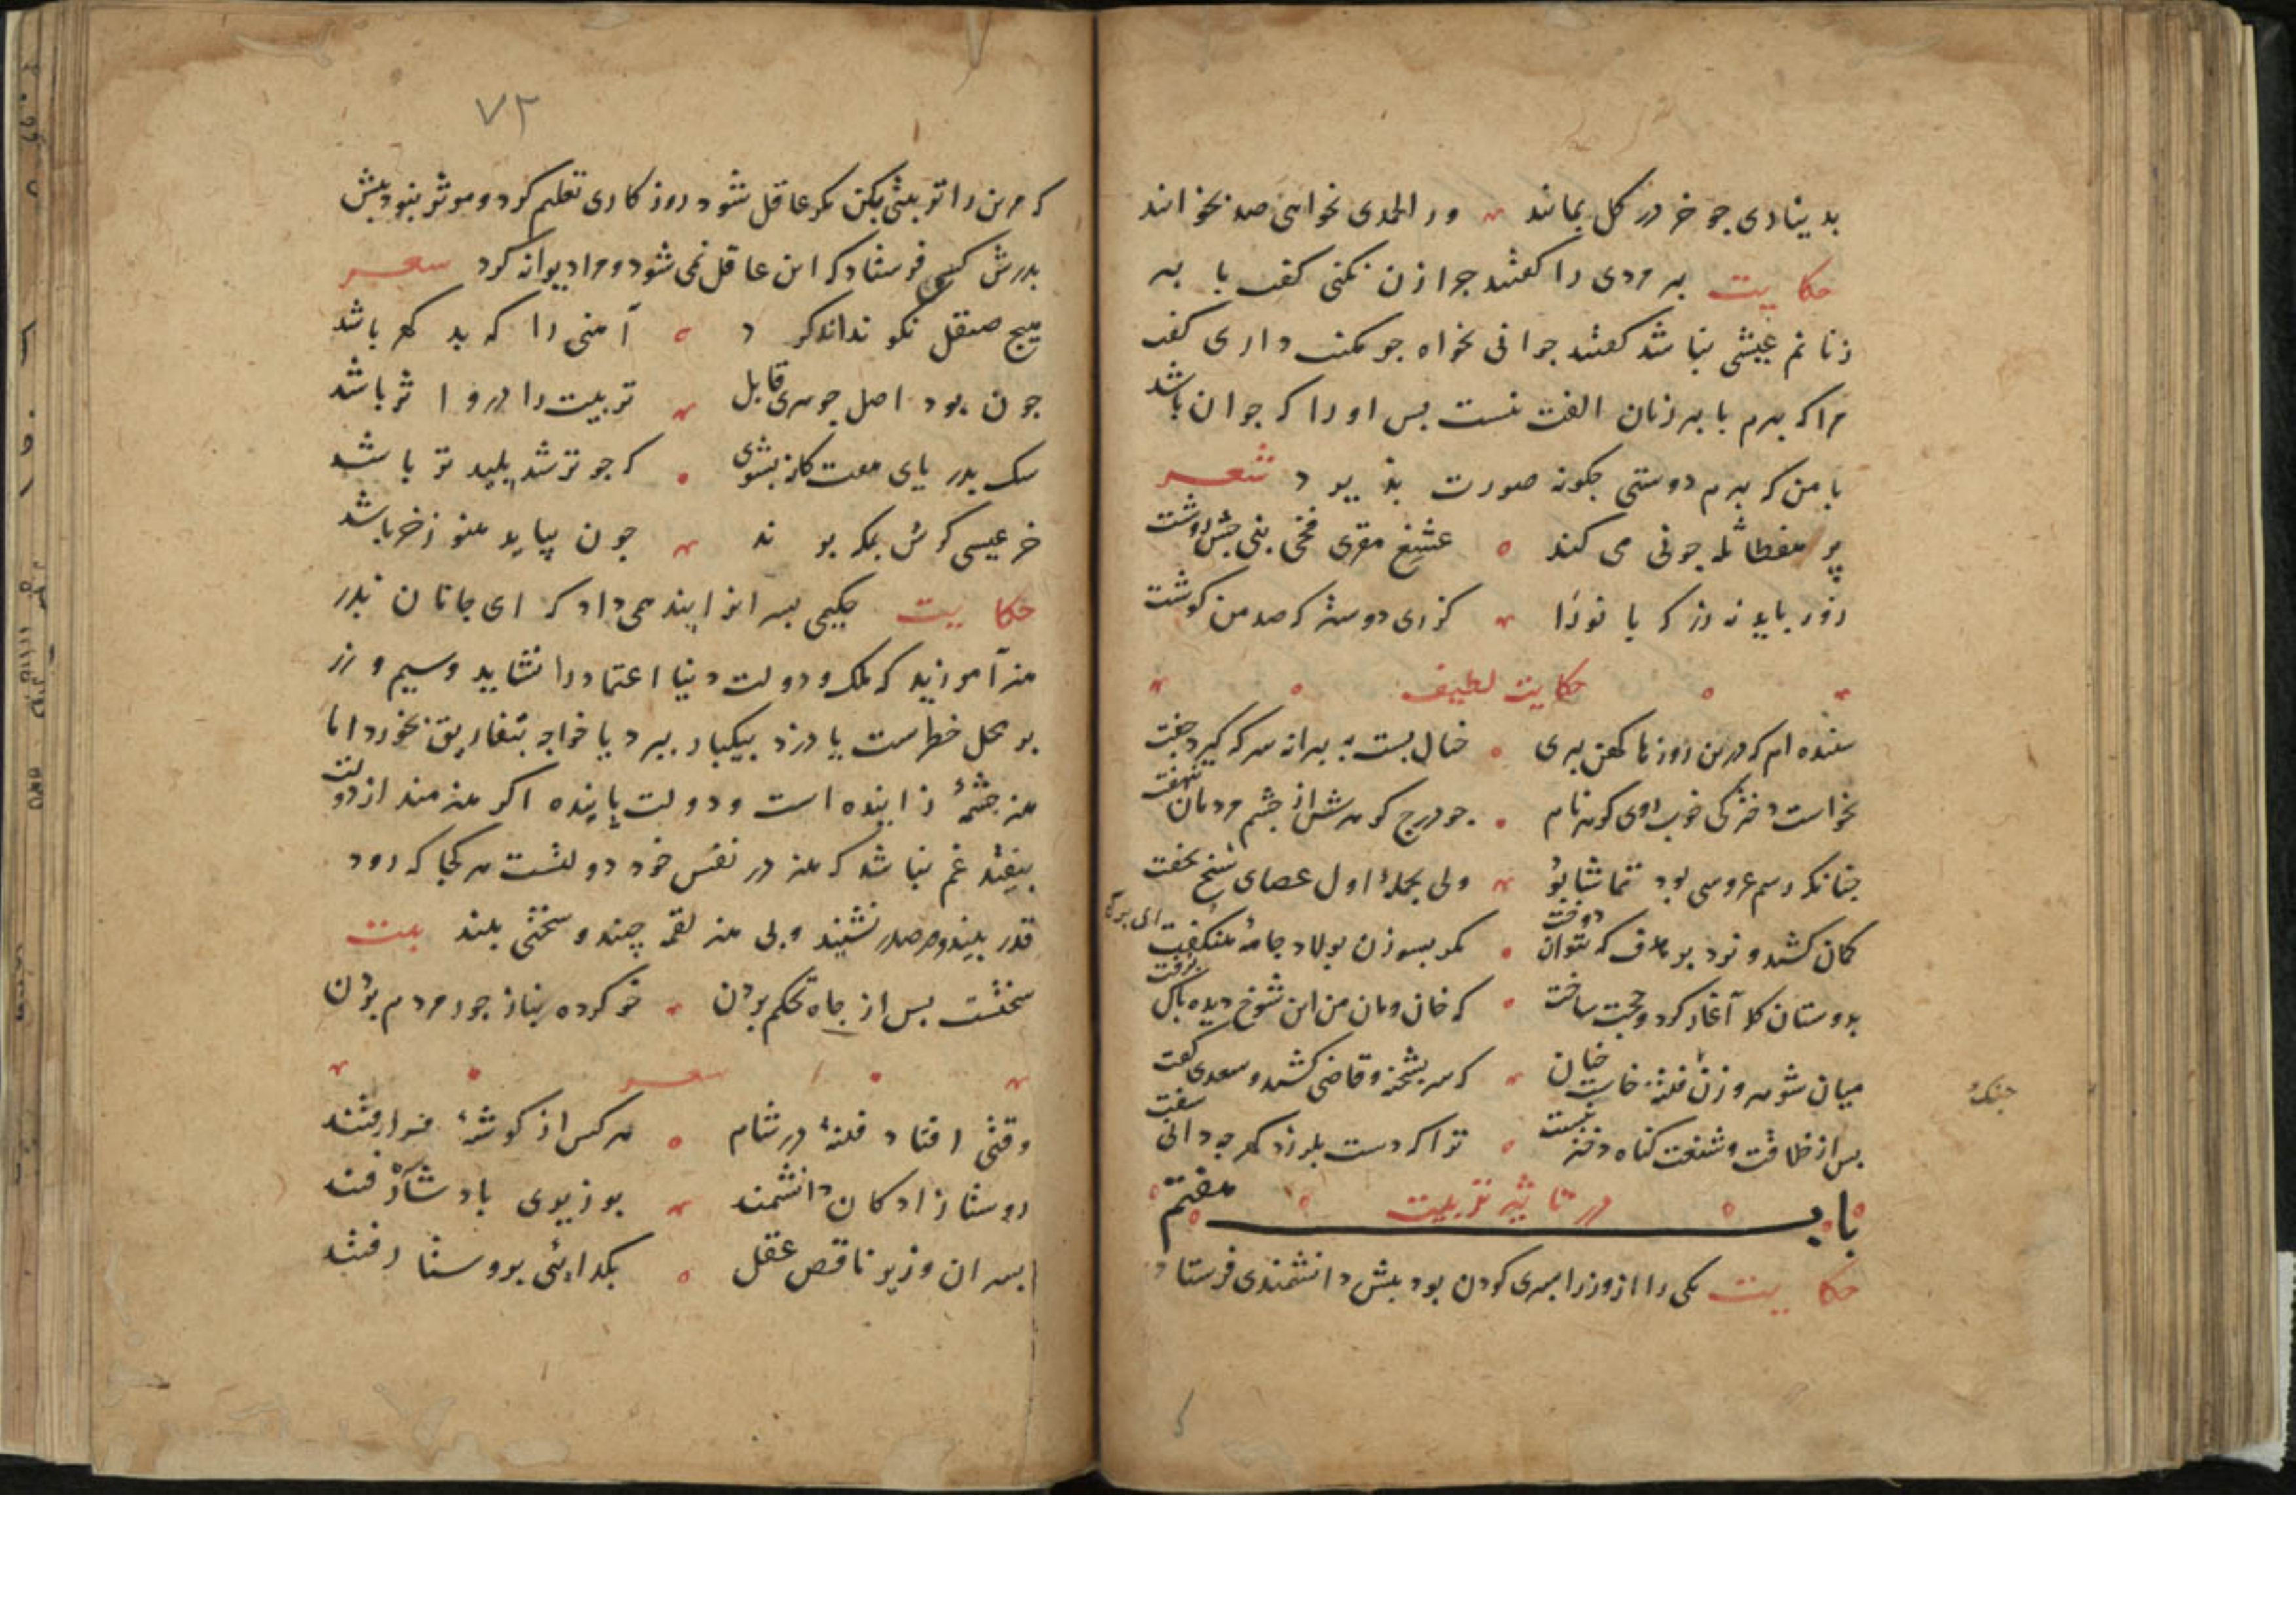 بدیناری جو خر در کل بمانند ور الحمدی بخواهی صد بخوانند
حکایت پیرمردی را کفتند جرا زن نکنی کفت با پیر
زنانم عیشی نباشد کفتند جوانی بخواه جو مکنت داری کفت
مرا که پیرم با پیر زنان الفت نیست بس او را که جوان باشد
با من که پیرم دوستی جکونه صورت بندد شعر
زور باید نه زر که بانو را کزری دوستر که صد من کوشت
حکایت لطیف
شنیده ام که درین روزها کهن پیری خیال بست به پیرانه سر که کیرد جفت
بخواست دخترکی خوب روی کوهر نام جو درج کوهرش از جشم مردمان بنهفت
جنانکه رسم عروسی بود تماشا بود ولی بحملۀ اول عصای شیخ بخفت
کمان کشید و نزد بر هدف که نتوان دوخت مکر بسوزن بولاد جامۀ هنکفت
بدوستان کله آغاز کرد و حجت ساخت که خان ومان من این شوخ دیده باک برفت
میان شوهر و زن فتنه خاست جنان که سر بشحنه و قاضی کشید و سعدی کفت
جنک
بس از خلافت و شنعت کناه دختر نیست ترا که دست بلرزد کهر جه دانی سفت
باب هفتم در تاثیر تربیت
حکایت یکی را از وزرا بسری کودن بود بیش دانشمندی فرستاد
۷۲
که مرین را تربیتی بکن مکر عاقل شود روزکاری تعلیم کرد و موثر نبود بیش
بدرش کسی فرستاد که این عاقل نمی شود و مرا دیوانه کرد شعر
هیج صیقل نکو نداند کرد آهنی را که بد کهر باشد
جون بود اصل جوهری قابل تربیت را درو اثر باشد
سک بدریای هفت کانه بشوی که جو تر شد پلید تر باشد
خر عیسی کرش بمکه برند جون بیاید هنوز خر باشد
حکایت حکیمی بسرانرا پند همی داد که ای جانان پدر
هنر آموزید که ملک و دولت دنیا اعتماد را نشاید و سیم و زر
بر محل خطرست یا دزد بیکبار ببرد یا خواجه بتفاریق بخورد اما
هنر جشمۀ زاینده است و دولت پاینده اکر هنرمند از دولت
بیفتد غم نباشد که هنر در نفس خود دولتست هر کجا که رود
قدر بیند و در صدر نشیند و بی هنر لقمه چیند و سختی بیند بیت
سختست بس از جاه تحکم بردن خو کرده بناز جور مردم بردن
شعر
وقتی افتاد فتنۀ در شام هر کس از کوشۀ فرا رفتند
روستا زادکان دانشمند بوزیری پادشاه رفتند
بسران وزیر ناقص عقل بکدایئی بروستا رفتند